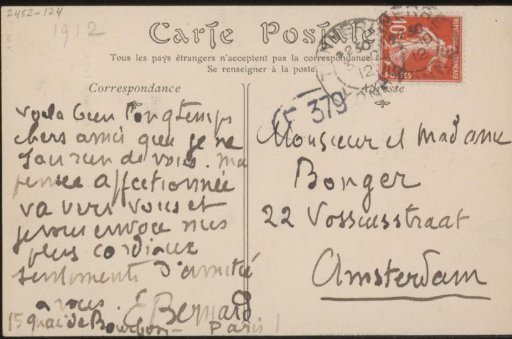 2452-124
1912
Carte Postale
Tous les pays étrangers n'acceptent pas la correspondance
Se renseigner à la poste.
Correspondance
Adresse
10
REPUBLIQUE FRANÇAISE
F 379
voila bien longtemps
chers amis que je ne
de vous. ma
pensee affectionnée
va vers vous et
je vous envoie mes
plus cordiaux
sentiments d'amitié
a vous. E Bernard
15 quai de Bourbon - Paris
Monsieur et Madame
Bonger
22 Vossiusstraat
Amsterdam